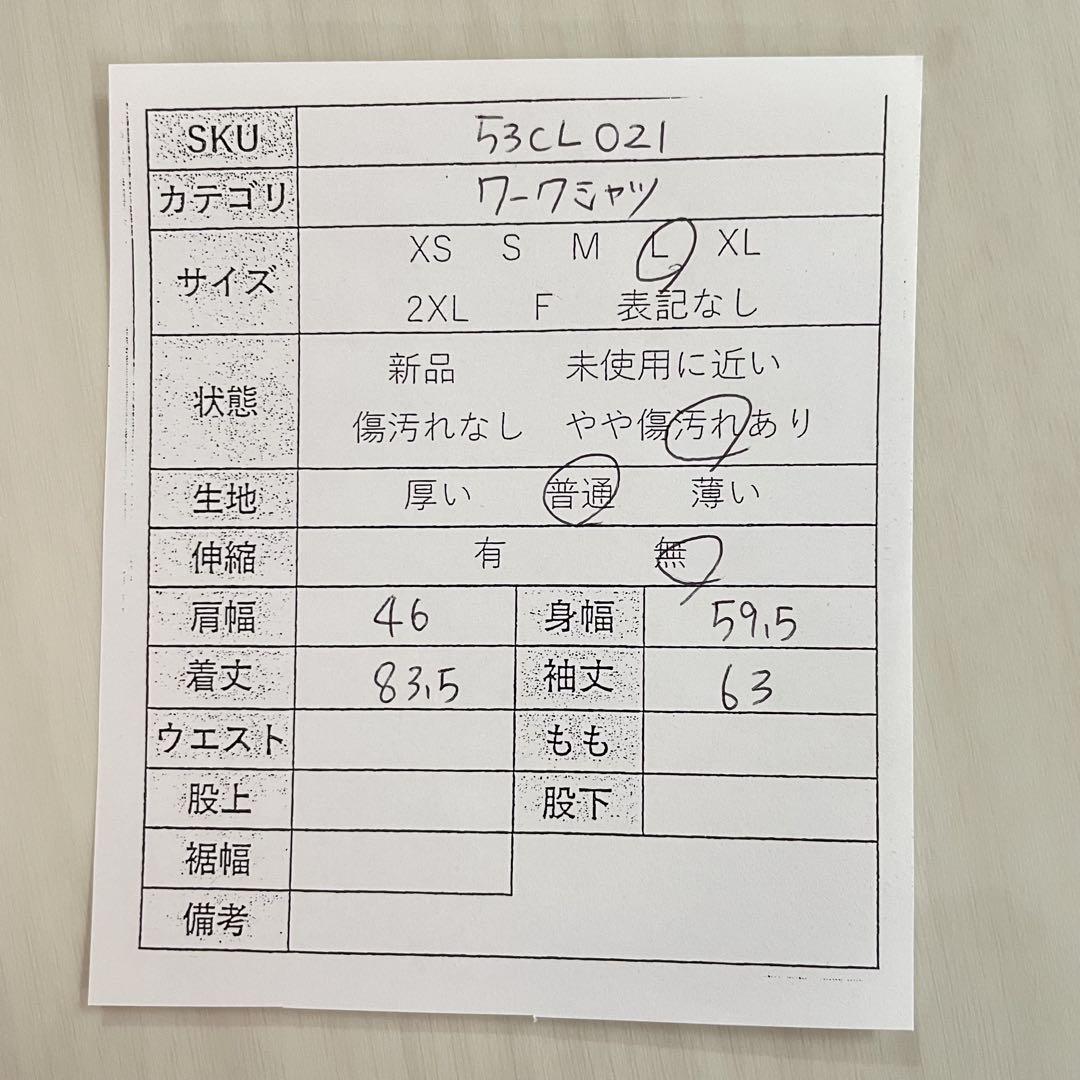 SKU 53CL021
カテゴリ ワークシャツ
サイズ XS S M L XL
2XL F 表記なし
状態 新品 未使用に近い
傷汚れなし やや傷汚れあり
生地 厚い 普通 薄い
伸縮 有 無
肩幅 46 身幅 59.5
着丈 83.5 袖丈 63
ウエスト もも
股上 股下
裾幅
備考